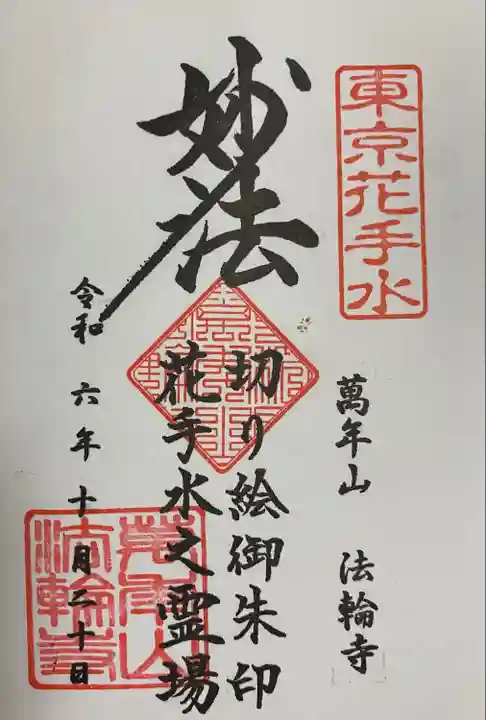 東京花手水
萬年山 法輪寺
妙法
切り絵御朱印
花手水之霊場
令和六年十月二十日
萬年山
法輪寺